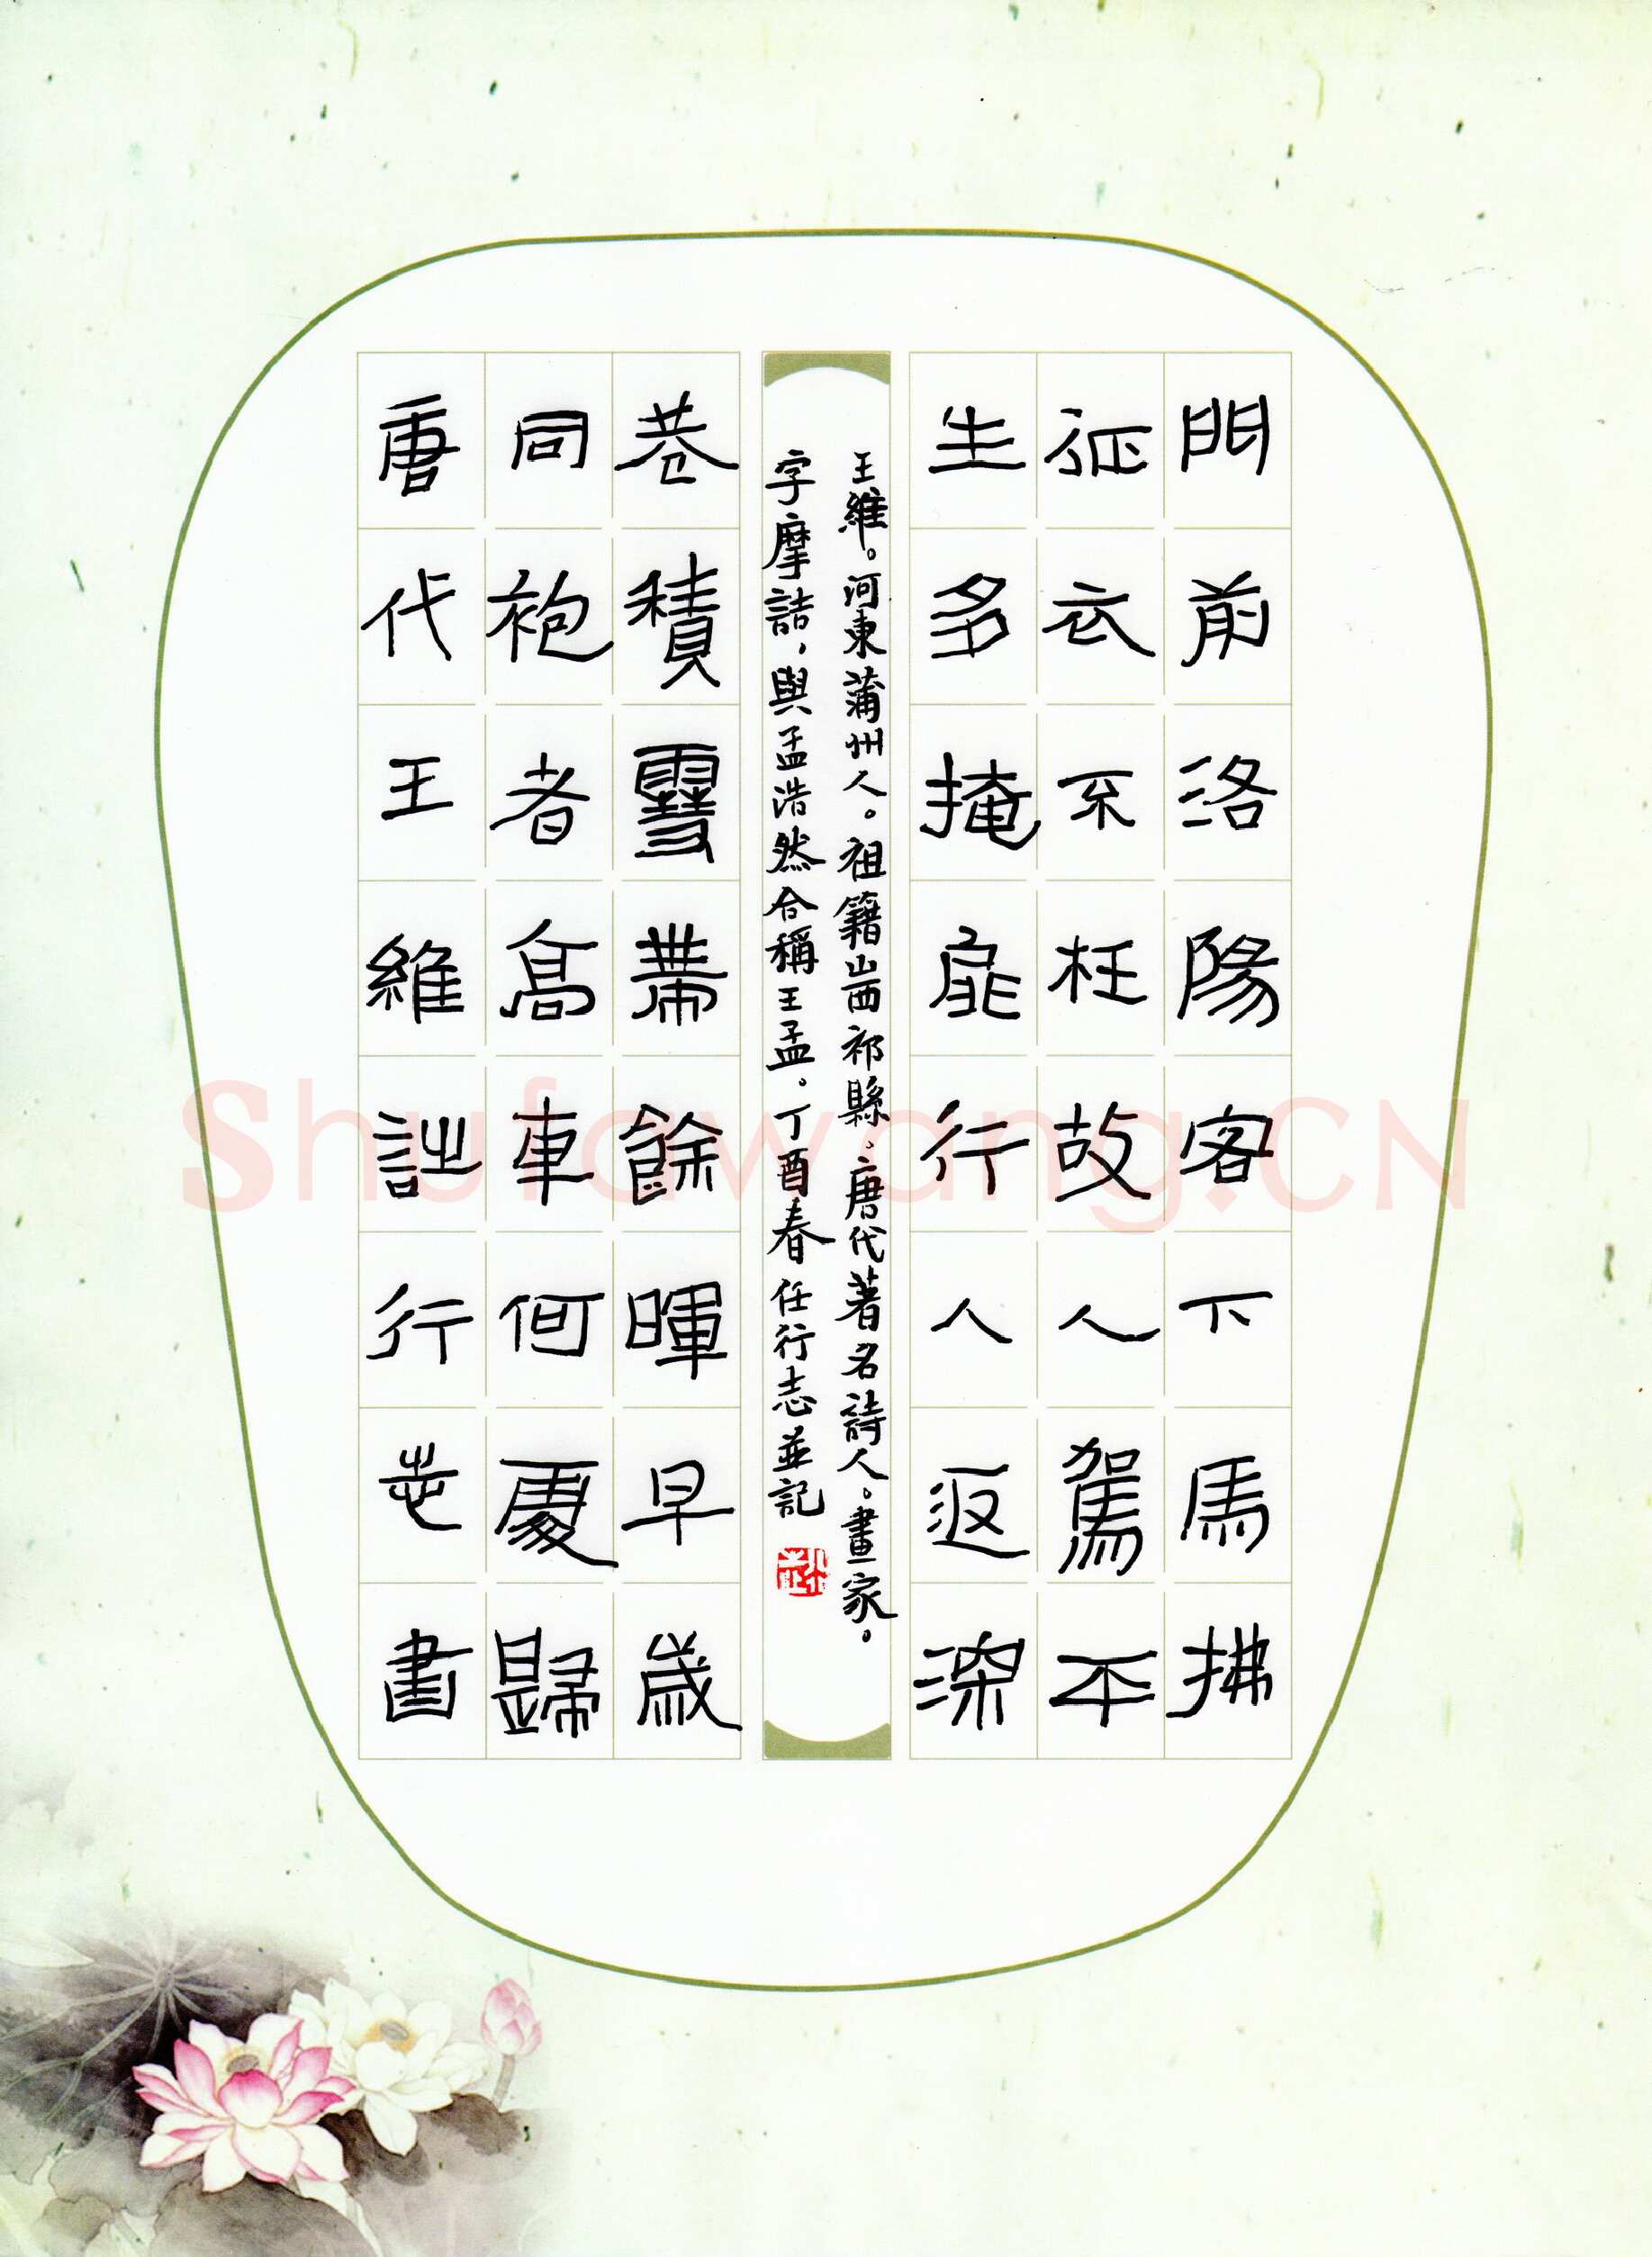 門前洛陽客下馬拂
征衣不枉故人駕平
生多掩扉行人返深
王維。河東蒲州人。祖籍山西祁縣。唐代著名詩人。畫家。
字摩詰，與孟浩然合稱王孟。丁酉春任行志並記
巷積雪帶餘暉早歲
同袍者高車何處歸
唐代王維詩行志書
Shufawang.CN